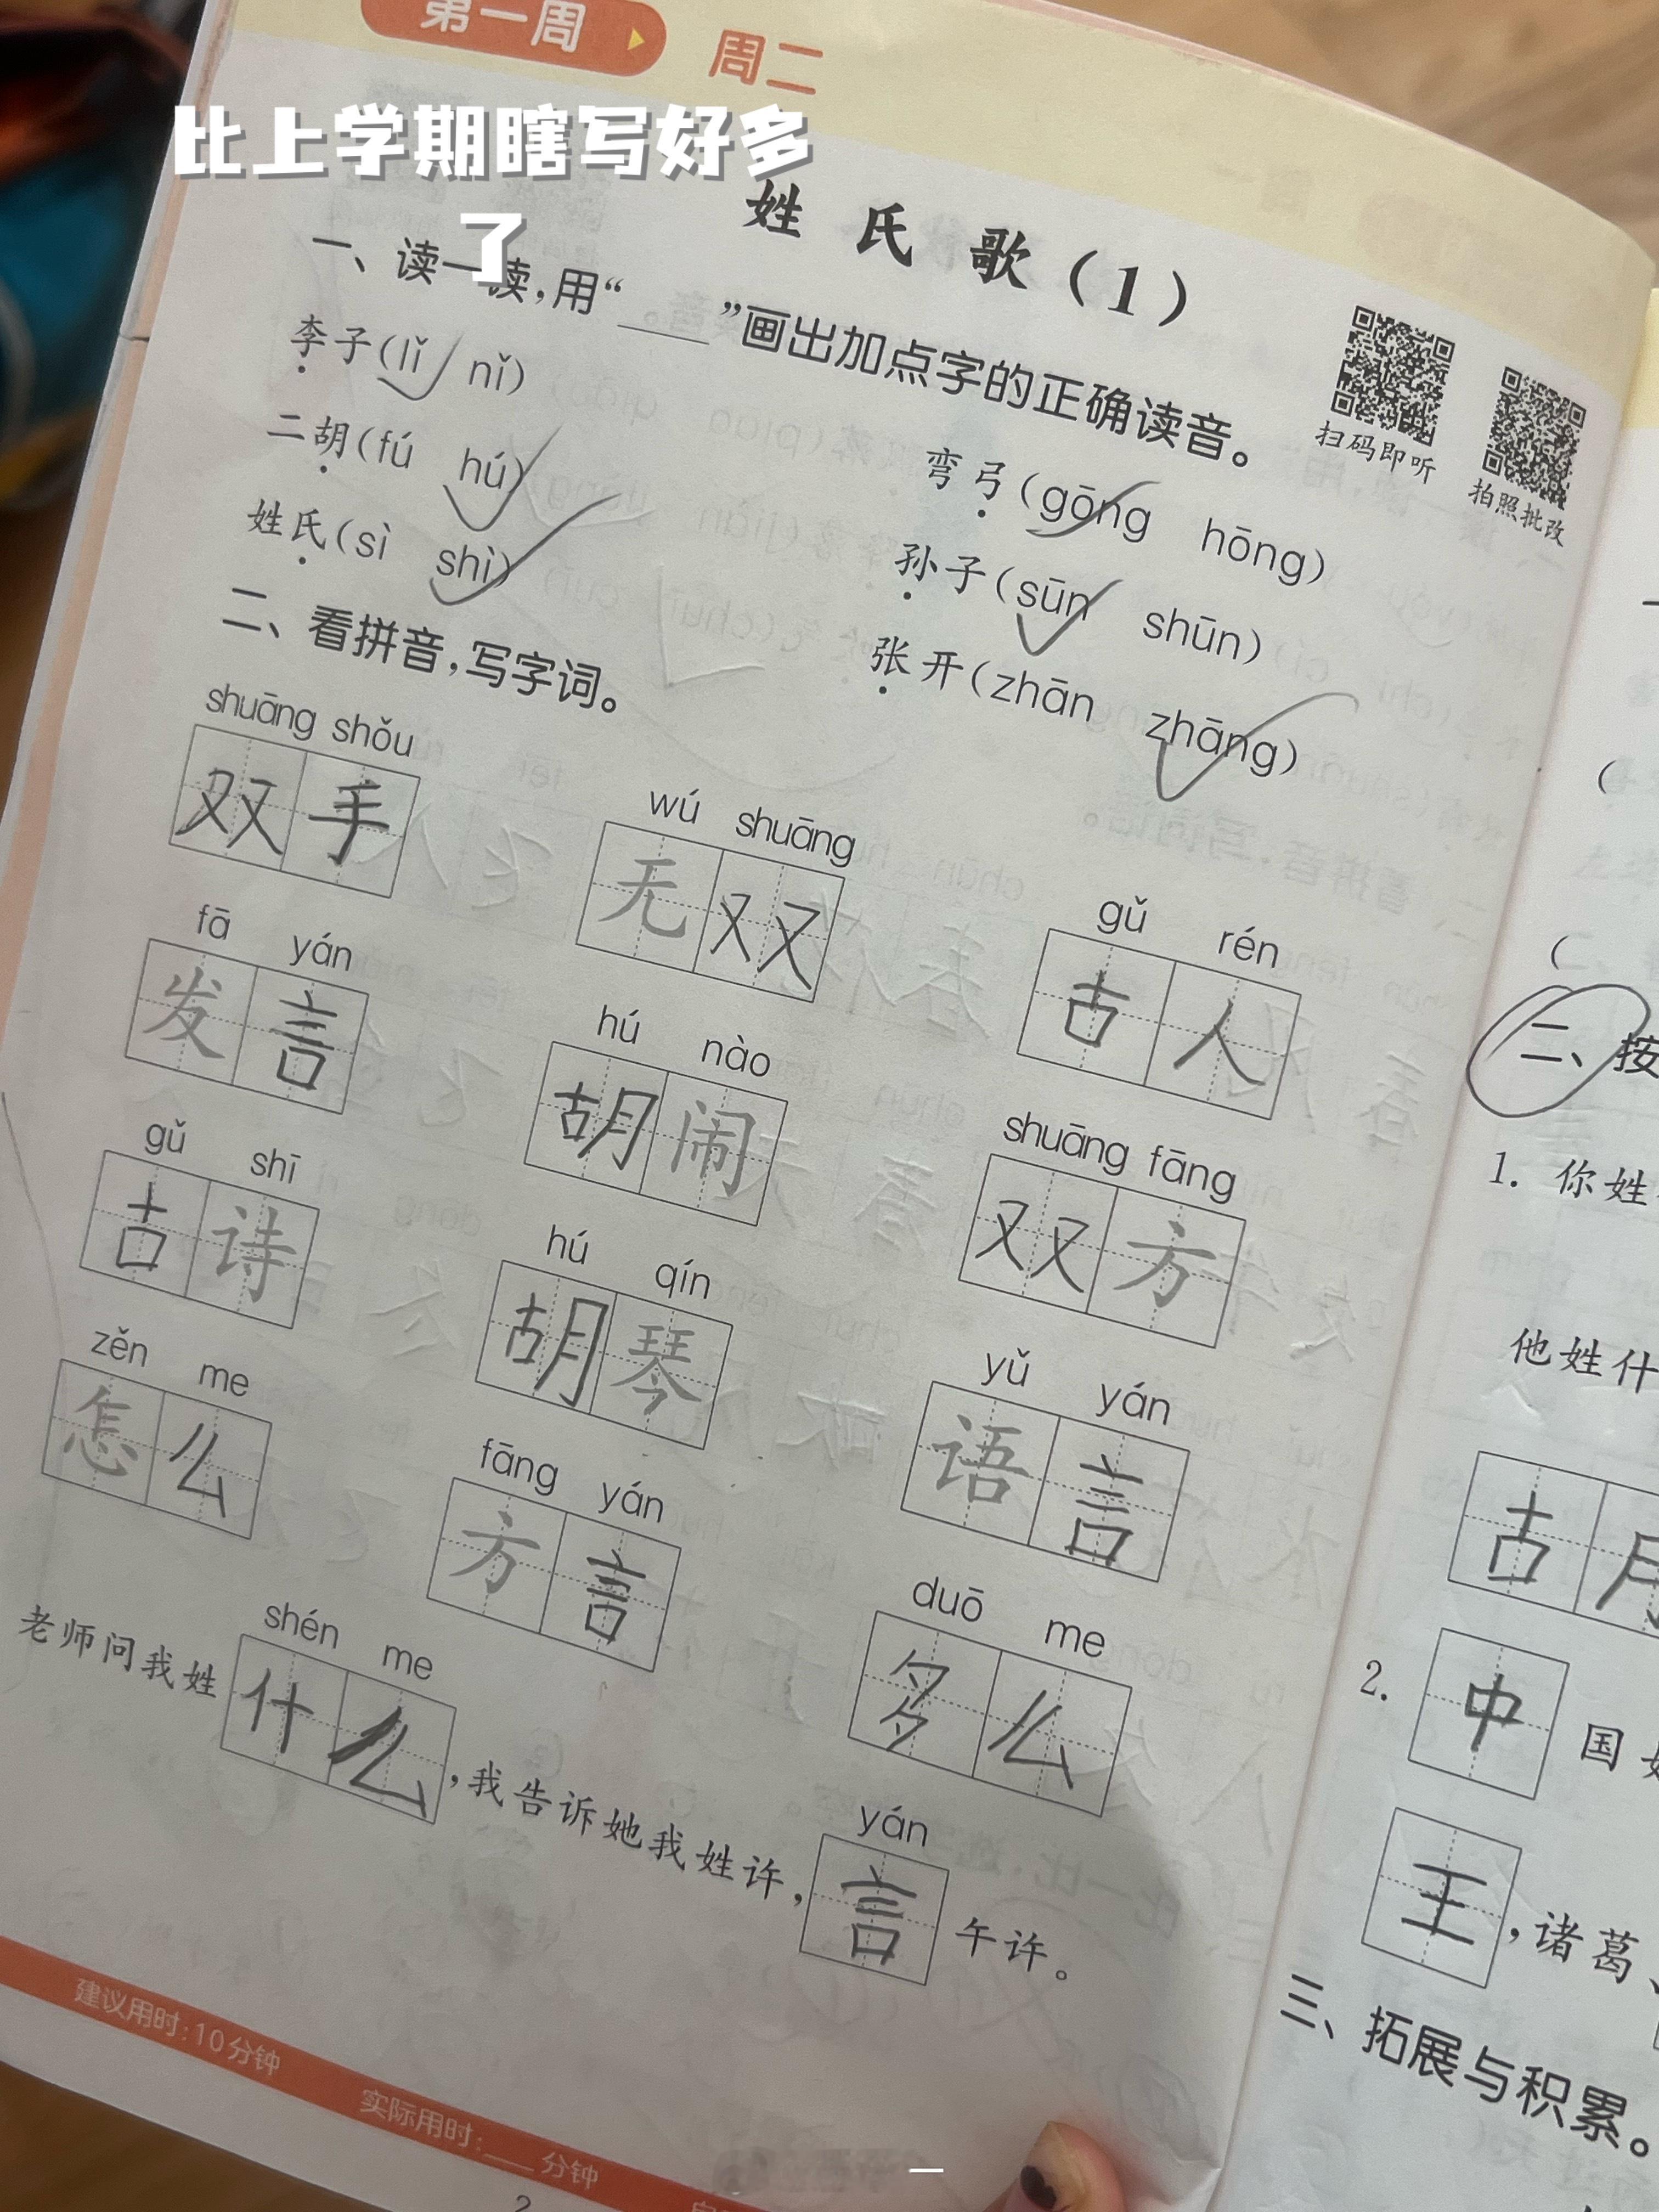 第一周 周二
比上学期瞎写好多
了
姓氏歌(1)
一、读一读,用“____”画出加点字的正确读音。
扫码即听 拍照批改
李子(lǐ nǐ) 弯弓(gōng hōng)
二胡(fú hú) 孙子(sūn shūn)
姓氏(sì shì) 张开(zhān zhāng)
二、看拼音,写字词。
shuāng shǒu wú shuāng gǔ rén
双手 无双 古人
fā yán hú nào shuāng fāng
发言 胡闹 双方
gǔ shī hú qín yǔ yán
古诗 胡琴 语言
zěn me fāng yán duō me
怎么 方言 多么
shén me yán
老师问我姓什么,我告诉她我姓许,言午许。
建议用时:10分钟 实际用时:____分钟
2
(
(
二、按
1. 你姓
他姓什
古月
2. 中国
王,诸葛、
三、拓展与积累。